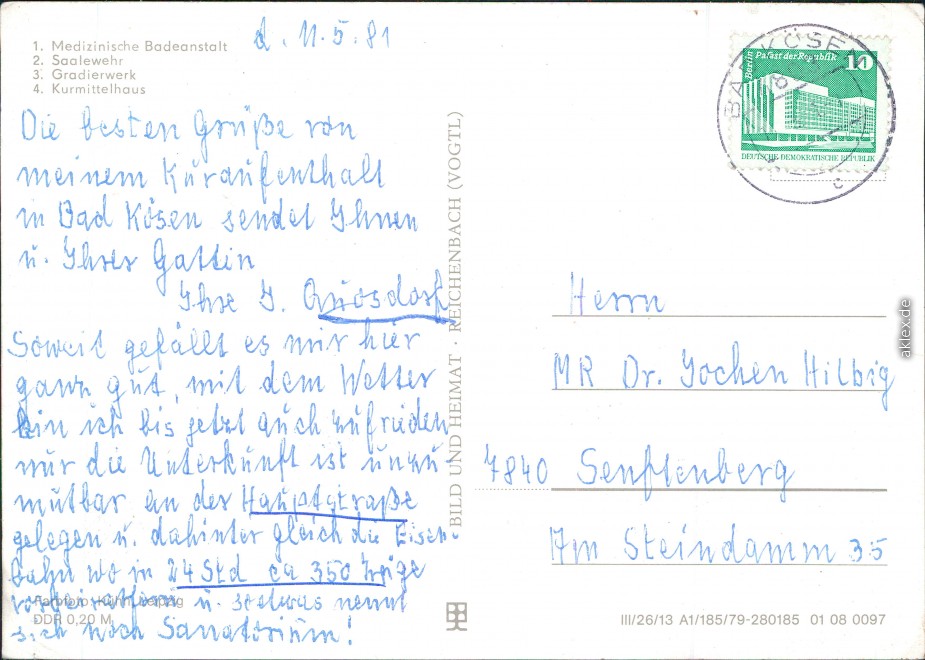 1. Medizinische Badeanstalt
2. Saalewehr
3. Gradierwerk
4. Kurmittelhaus
d. 11.5.81
Die besten Grüße von
meinem Kuraufenthalt
in Bad Kösen sendet Ihnen
u. Ihrer Gattin
Ihre I. Quosdorf
Soweit gefällt es mir hier
ganz gut, mit dem Wetter
bin ich bis jetzt auch zufrieden
nur die Unterkunft ist unzu-
mutbar an der Hauptstraße
gelegen u. dahinter gleich die Eisen-
bahn wo in 24 Std ca 350 Züge
u. sowas nennt
sich noch Sanatorium!
Farbfoto: Kühn, Leipzig
DDR 0,20 M
BILD UND HEIMAT · REICHENBACH (VOGTL)
BAD KÖSEN
c
Berlin Palast der Republik 10
DEUTSCHE DEMOKRATISCHE REPUBLIK
Herrn
MR Dr. Jochen Hilbig
7840 Senftenberg
Am Steindamm 35
III/26/13 A1/185/79-280185 01 08 0097
aklex.de